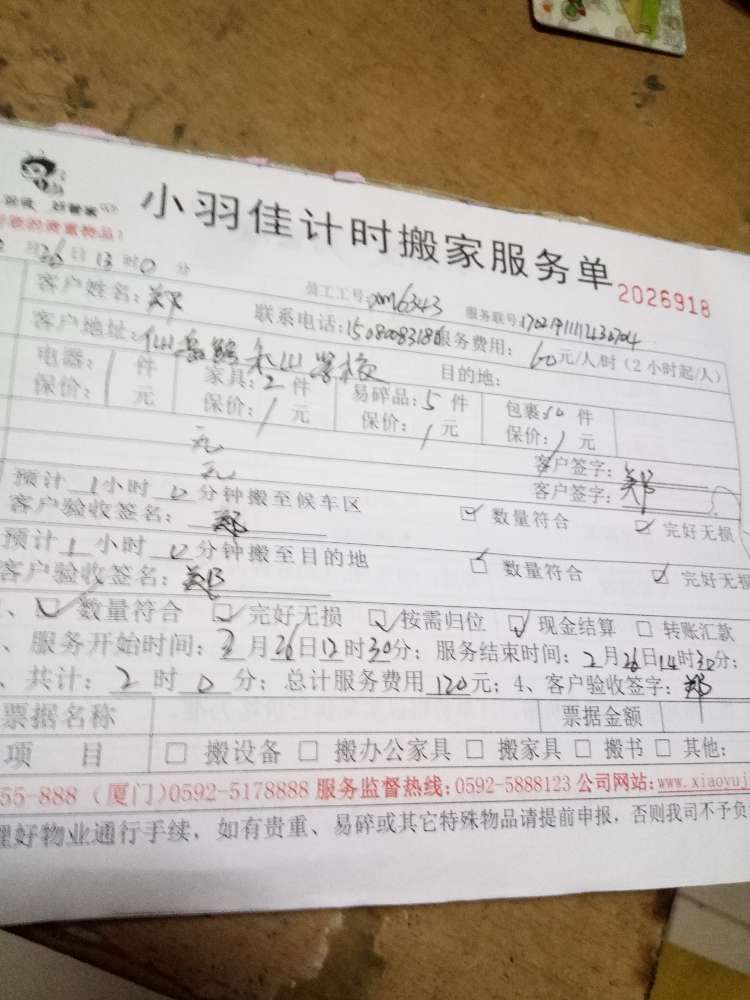 小羽佳计时搬家服务单 2026918
月26日13时0分 员工工号:xm6343 服务联号:
客户姓名:郑 联系电话:15080083180 服务费用:60元/人/时(2小时起/人)
客户地址: 目的地:
电器:/件 家具:2件 易碎品:5件 包裹:10件
保价:/元 保价:/元 保价:/元 保价:/元
元 客户签字:郑
元 客户签字:郑
预计1小时0分钟搬至候车区 数量符合 完好无损
客户验收签名:郑
预计1小时0分钟搬至目的地 数量符合 完好无损
客户验收签名:郑
数量符合 完好无损 按需归位 现金结算 转账汇款
、服务开始时间:2月26日12时30分;服务结束时间:2月26日14时30分;
、共计:2时0分;总计服务费用120元;4、客户验收签字:郑
票据名称 票据金额
项目 搬设备 搬办公家具 搬家具 搬书 其他:
55-888(厦门)0592-5178888 服务监督热线:0592-5888123 公司网站:www.xiaoyuj
理好物业通行手续,如有贵重、易碎或其它特殊物品请提前申报,否则我司不予负